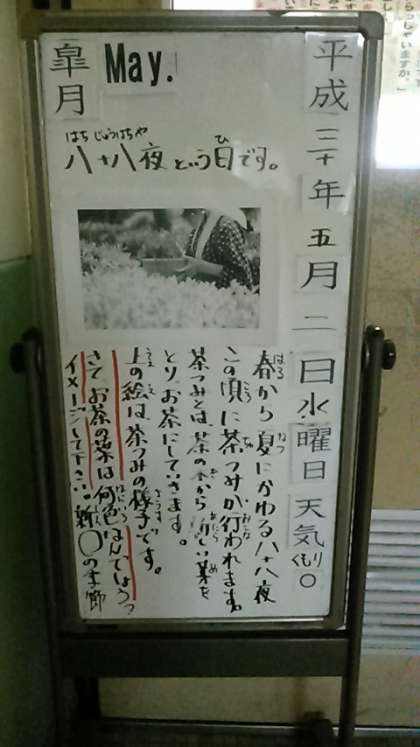 平成三十年五月二日水曜日天気くもり○
皐月
May.
はちじゅうはちや ひ
八十八夜という日です。
はる なつ
春から夏にかわる八十八夜
ころ ちゃ おこな
この頃に茶つみが行われます。
茶つみとは、茶の木から新しい芽を
とり、お茶にしていきます。
うえ え ようす
上の絵は茶つみの様子です。
さて、お茶の葉は何色なんでしょう?
イメージして下さい。新○の季節